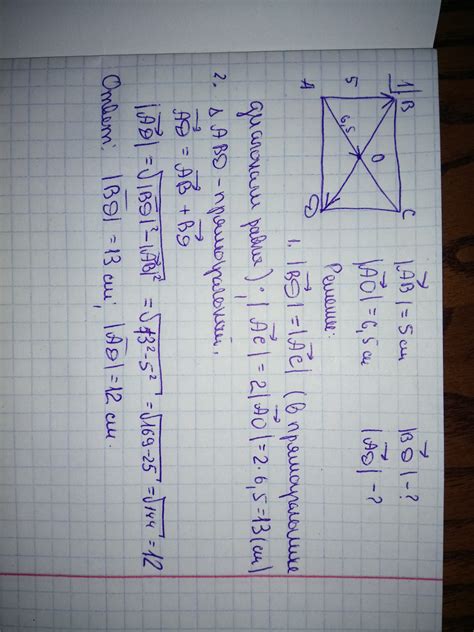 1) B
C
A
D
O
5
6,5
|AB→| = 5 см
|AO→| = 6,5 см
|BD→| - ?
|AD→| - ?
Решение:
1. |BD→| = |AC→| (в прямоугольнике
диагонали равны); |AC→| = 2|AO→| = 2·6,5 = 13 (см)
2. Δ ABD - прямоугольный,
AD→ = AB→ + BD→
|AD→| = √|BD→|² - |AB→|² = √13² - 5² = √169 - 25 = √144 = 12
Ответ: |BD→| = 13 см; |AD→| = 12 см.